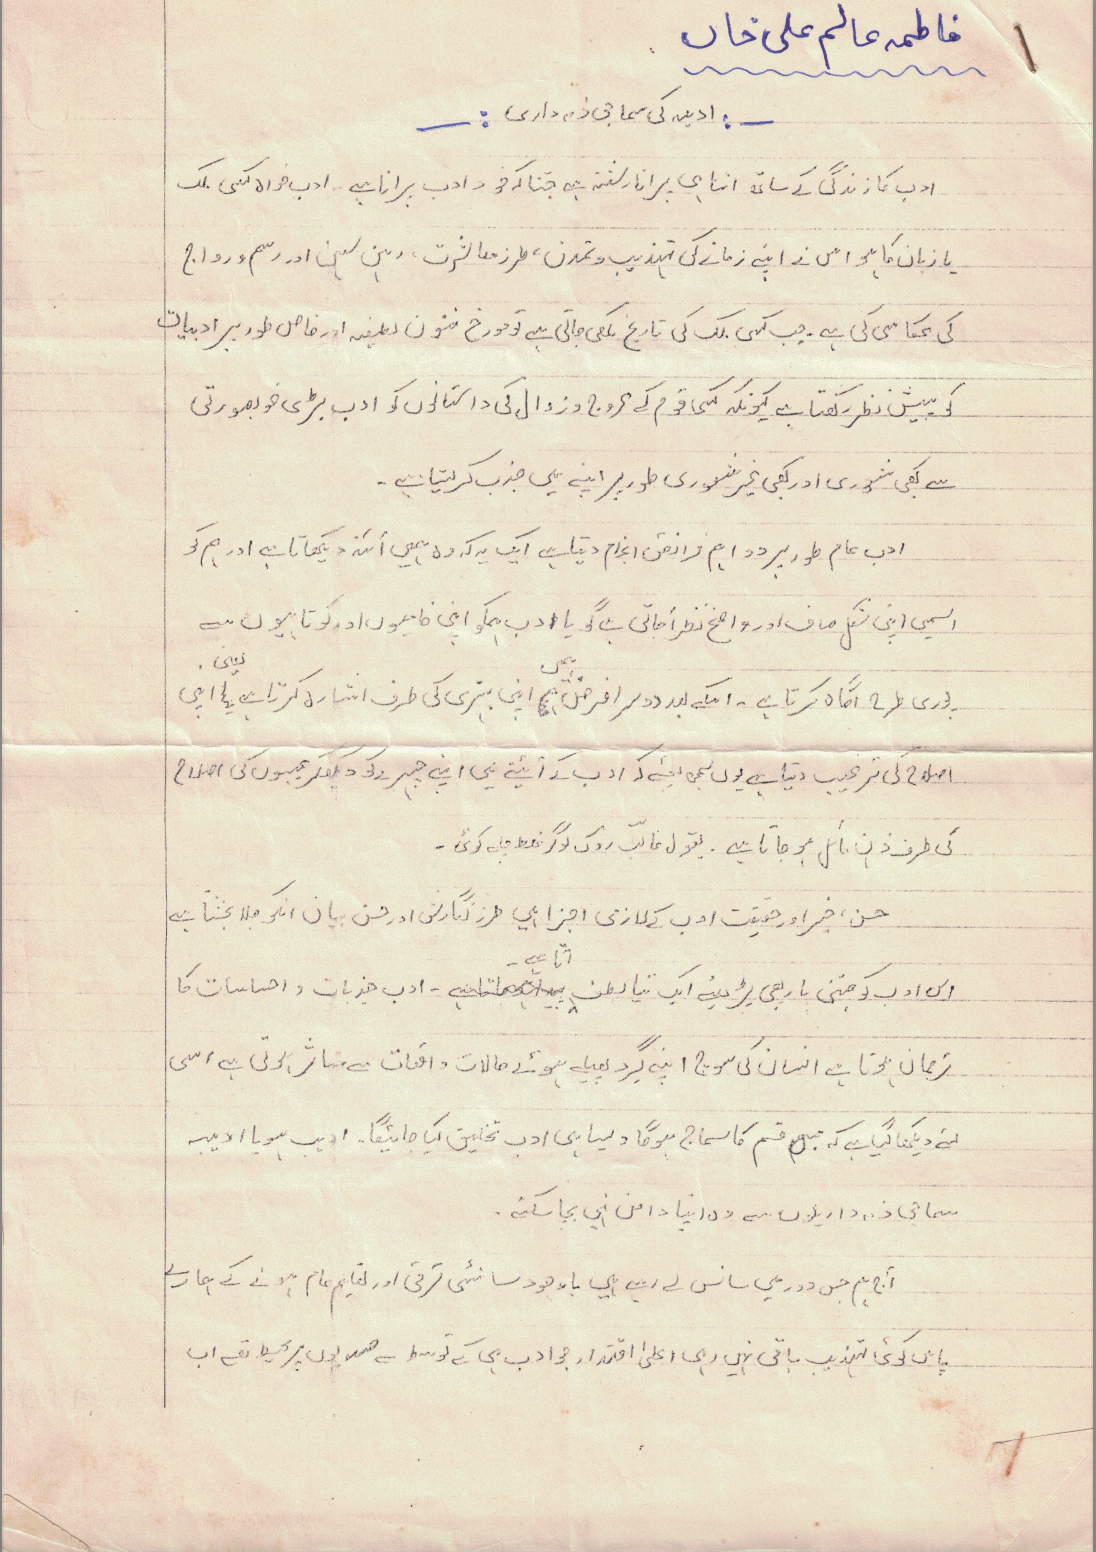 فاطمہ عالم علی خاں
ادیبہ کی سماجی ذمہ داری
ادب کا زندگی کے ساتھ اتنا ہی پرانا رشتہ ہے جتنا کہ خود ادب پرانا ہے ۔ ادب خواہ کسی ملک
یا زبان کا ہو اس نے اپنے زمانے کی تہذیب و تمدن ، طرز معاشرت ، رہن سہن اور رسم و رواج
کی عکاسی کی ہے ۔ جب کسی ملک کی تاریخ لکھی جاتی ہے تو مورخ فنون لطیفہ اور خاص طور پر ادبیات
کو پیش نظر رکھتا ہے کیونکہ کسی قوم کے عروج و زوال کی داستانوں کو ادب بڑی خوبصورتی
سے کبھی شعوری اور کبھی غیر شعوری طور پر اپنے میں جذب کر لیتا ہے ۔
ادب عام طور پر دو اہم فرائض انجام دیتا ہے ایک یہ کہ وہ ہمیں آئنہ دیکھاتا ہے اور ہم کو
اسمیں اپنی شکل صاف اور واضح نظر آجاتی ہے گویا ادب ہمکو اپنی خامیوں اور کوتاہیوں سے
پوری طرح آگاہ کرتا ہے ۔ اسکے بعد دوسرا فرض ہمیں اپنی بہتری کی طرف اشارہ کرتا ہے یعنی اپنی
اصلاح کی ترغیب دیتا ہے یوں سمجھ لیجئے کہ ادب کے آئینے میں اپنے چہرے کو دیکھکر عیبوں کی اصلاح
کی طرف ذہن مائل ہو جاتا ہے ۔ بقول غالب روک لو گر غلط چلے کوئی ۔
حسن ، خیر اور حقیقت ادب کے لازمی اجزا ہیں طرز نگارش اور حسن بیان انکو جلا بخشتا ہے
اس ادب کو جتنی بار بھی پڑھیئے ایک نیا لطف آتا ہے ۔ ادب جذبات و احساسات کا
ترجمان ہوتا ہے انسان کی سوچ اپنے گرد پھیلے ہوئے حالات و واقعات سے متاثر ہوتی ہے اسی
لئے دیکھا گیا ہے کہ جس قسم کا سماج ہوگا ویسا ہی ادب تخلیق کیا جائیگا ۔ ادیب ہو یا ادیبہ
سماجی ذمہ داریوں سے وہ اپنا دامن نہیں بچا سکتے ۔
آج ہم جس دور میں سانس لے رہے ہیں باوجود سائنسی ترقی اور تعلیم عام ہونے کے ہمارے
پاس کوئی تہذیب باقی نہیں رہی اعلیٰ اقتدار جو ادب ہی کے توسط سے صدیوں پر محیط تھے اب